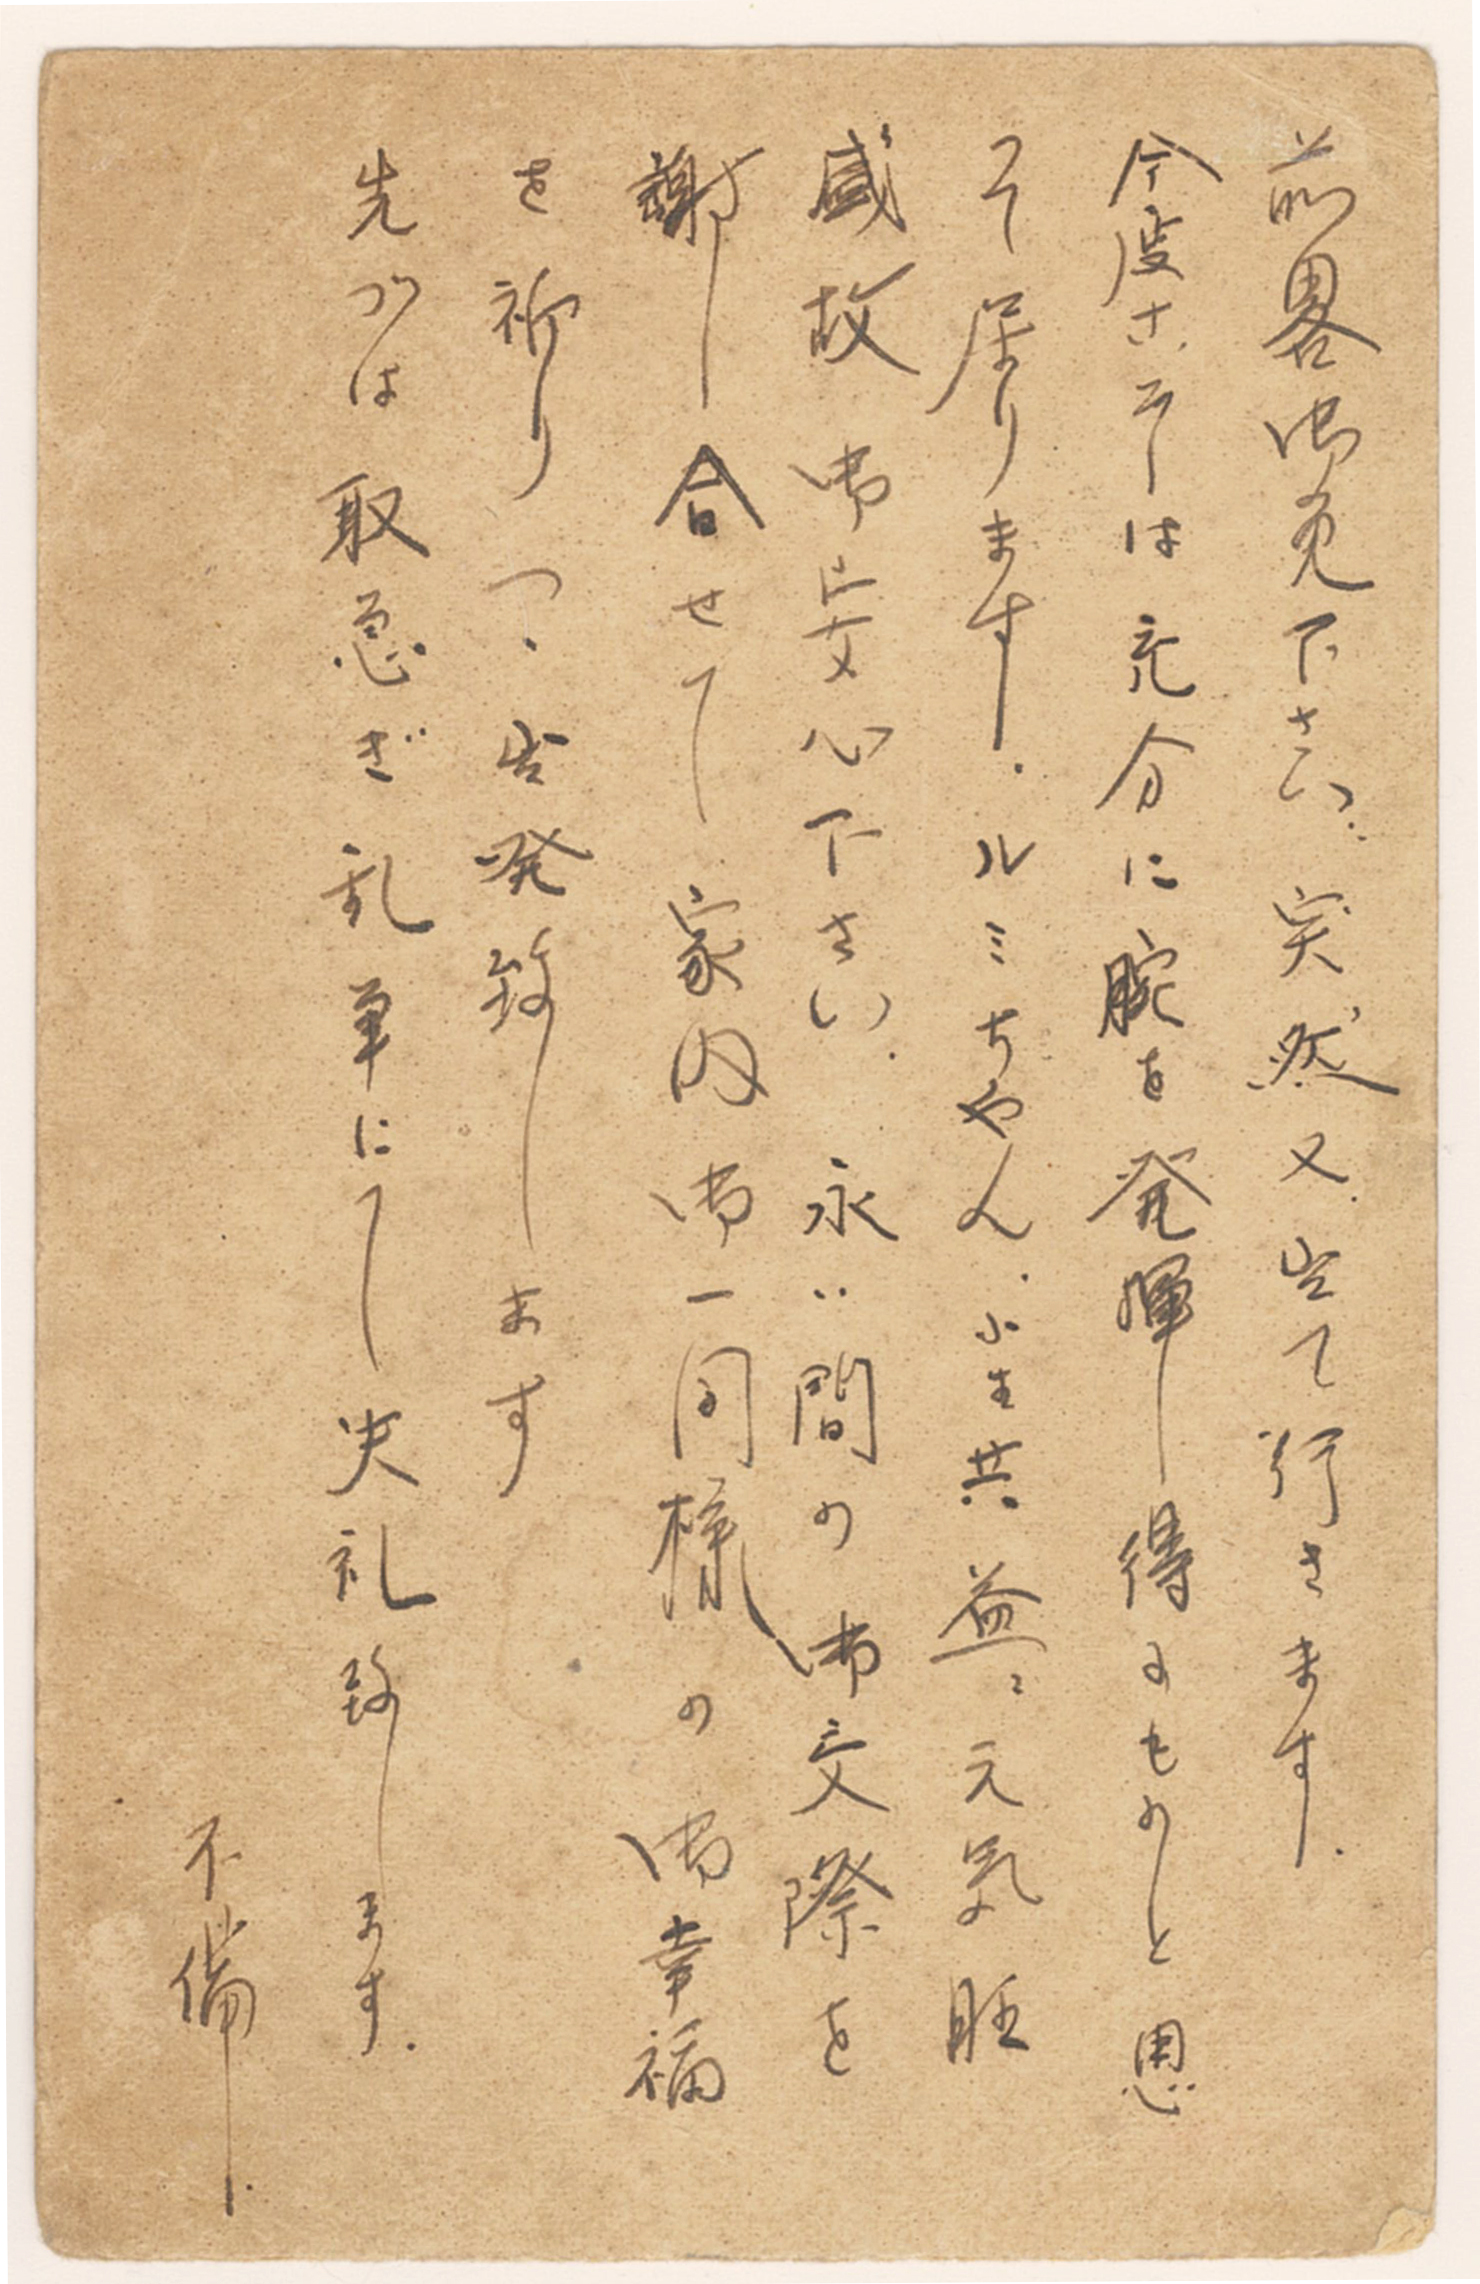 前畧御免下さい、突然又出て行きます.
今度こそは充分に腕を発揮し得るものと思
つて居ります. ルミちやん. 小生共益々元気旺
盛故御安心下さい. 永い間の御交際を
謝し合せて家内御一同様の御幸福
を祈りつゝ出発致します
先づは取急ぎ乱筆にて失礼致します.
不備